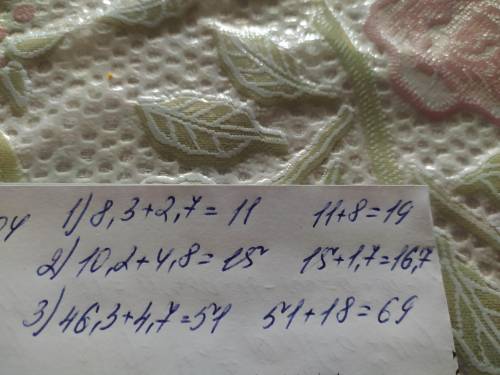 04 1) 8,3+2,7=11 11+8=19
2) 10,2+4,8=15 15+1,7=16,7
3) 46,3+4,7=51 51+18=69